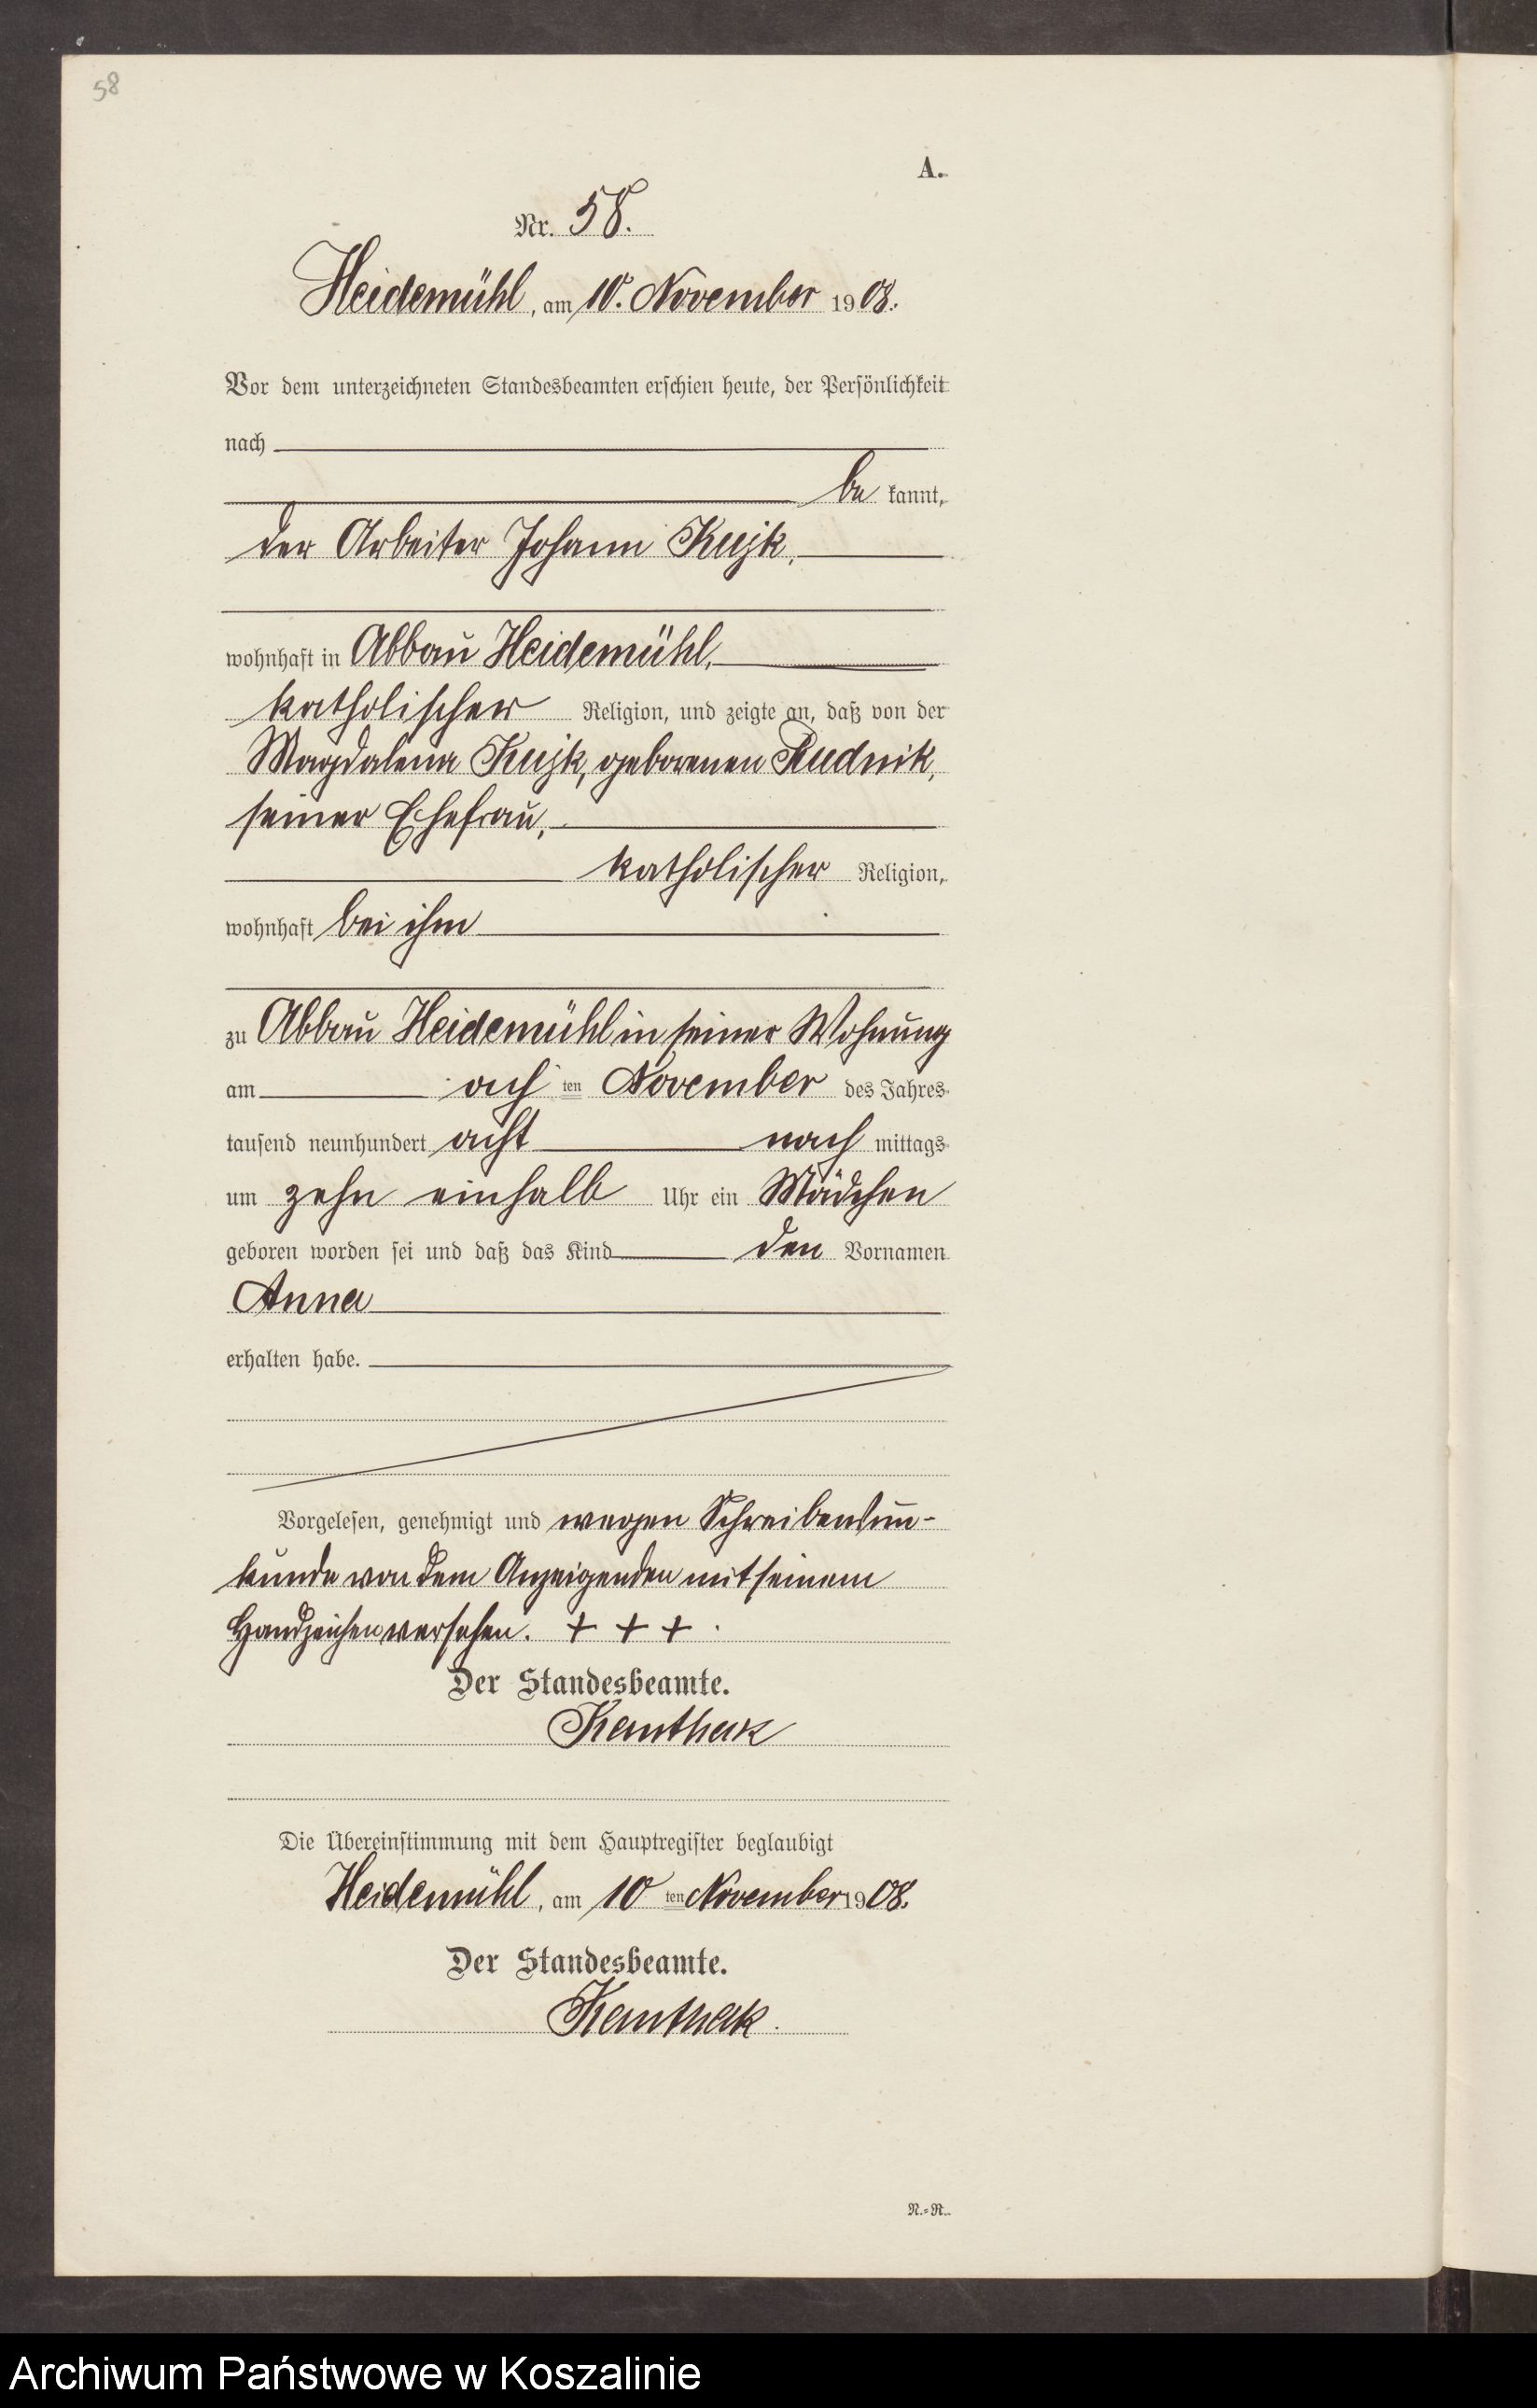 58
A.
Nr. 58.
Heidemühl, am 10. November 1908.
Vor dem unterzeichneten Standesbeamten erschien heute, der Persönlichkeit
nach
be kannt,
der Arbeiter Johann Kujk,
wohnhaft in Abbau Heidemühl,
katholischer Religion, und zeigte an, daß von der
Magdalena Kujk, geborenen Rudnik,
seiner Ehefrau,
katholischer Religion,
wohnhaft bei ihm
zu Abbau Heidemühl in seiner Wohnung
am ach ten November des Jahres
tausend neunhundert acht nach mittags
um zehn einhalb Uhr ein Mädchen
geboren worden sei und daß das Kind den Vornamen
Anna
erhalten habe.
Vorgelesen, genehmigt und wegen Schreibensun-
kunde von dem Anzeigenden mit seinem
Handzeichen versehen. + + +.
Der Standesbeamte.
Kanthak
Die Übereinstimmung mit dem Hauptregister beglaubigt
Heidemühl, am 10 ten November 1908.
Der Standesbeamte.
Kanthak.
N.=R.
Archiwum Państwowe w Koszalinie